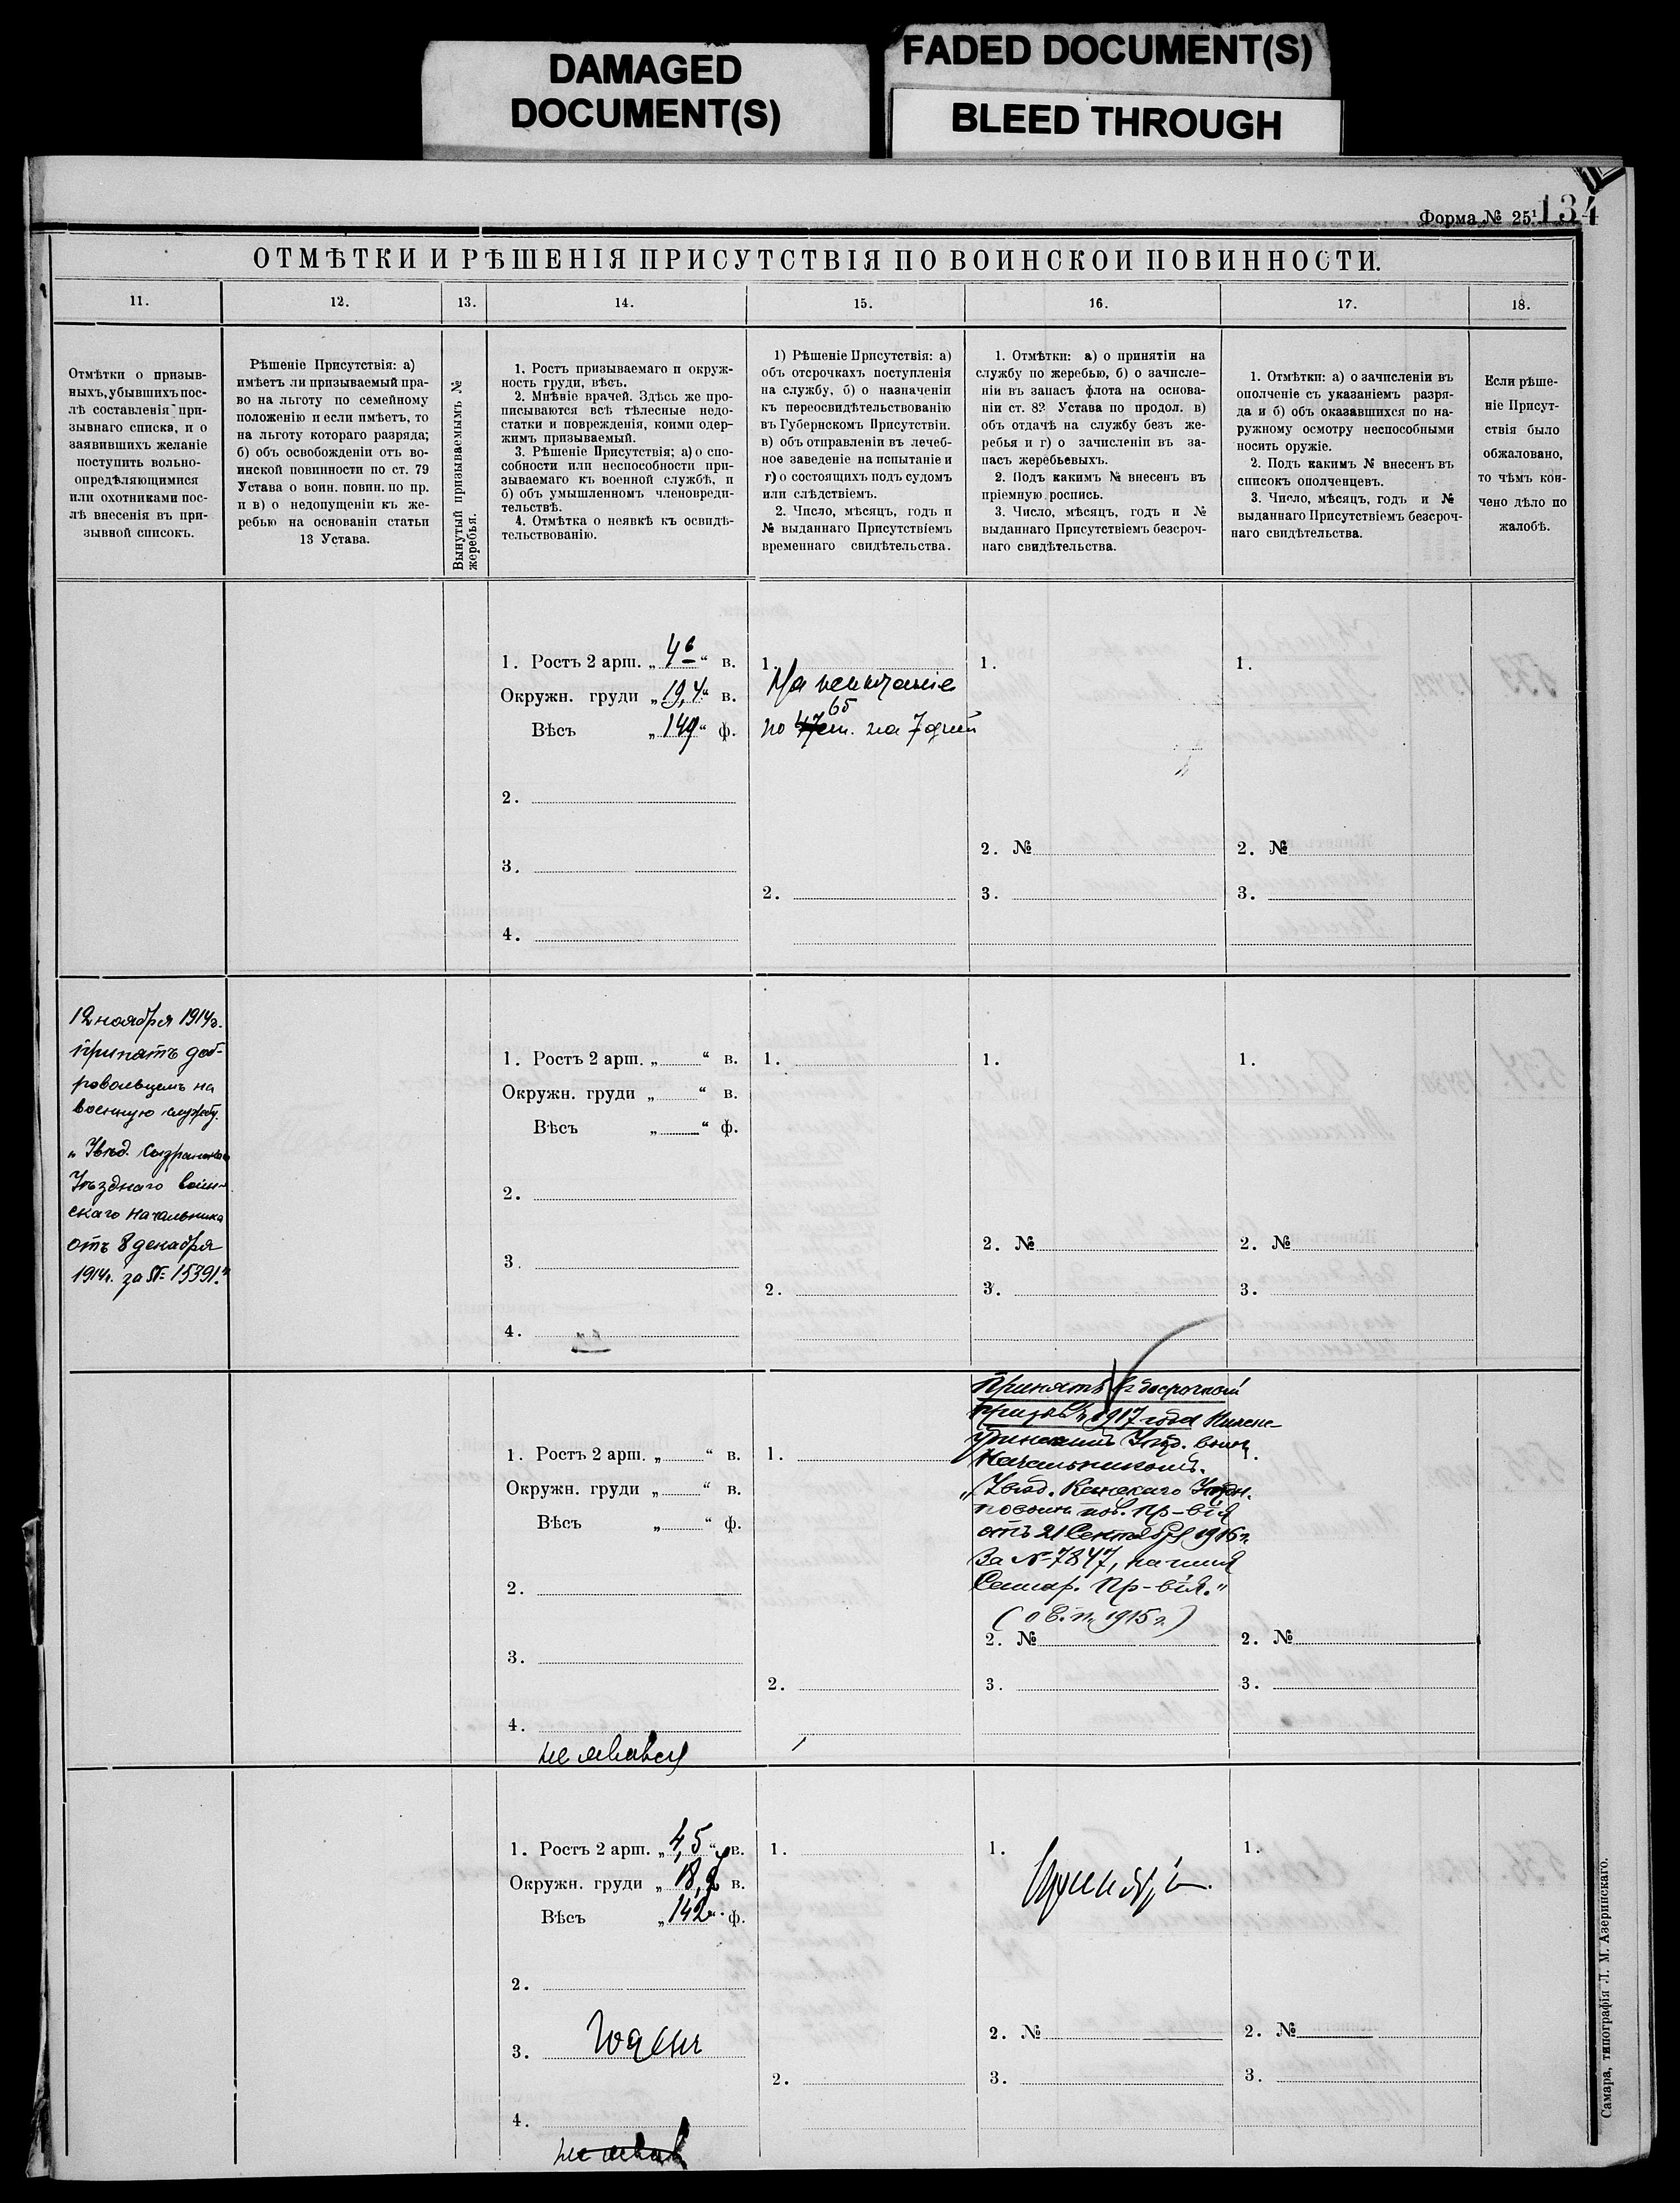 DAMAGED
DOCUMENT(S)
FADED DOCUMENT(S)
BLEED THROUGH
Форма № 25¹
134
ОТМѢТКИ И РѢШЕНІЯ ПРИСУТСТВІЯ ПО ВОИНСКОИ ПОВИННОСТИ.
11.
12.
13.
14.
15.
16.
17.
18.
Отмѣтки о призыв-
ныхъ, убывшихъ пос-
лѣ составленія при-
зывнаго списка, и о
заявившихъ желаніе
поступить вольно-
опредѣляющимися
или охотниками пос-
лѣ внесенія въ при-
зывной списокъ.
Рѣшеніе Присутствія: а)
имѣетъ ли призываемый пра-
во на льготу по семейному
положенію и если имѣетъ, то
на льготу котораго разряда;
б) объ освобожденіи отъ во-
инской повинности по ст. 79
Устава о воин. повин. по пр.
и в) о недопущеніи къ же-
ребью на основаніи статьи
13 Устава.
Вынутый призываемымъ №
жеребья.
1. Ростъ призываемаго и окруж-
ность груди, вѣсъ.
2. Мнѣніе врачей. Здѣсь же про-
писываются всѣ тѣлесные недо-
статки и поврежденія, коими одер-
жимъ призываемый.
3. Рѣшеніе Присутствія; а) о спо-
собности или неспособности при-
зываемаго къ военной службѣ, и
б) объ умышленномъ членовреди-
тельствѣ.
4. Отмѣтка о неявкѣ къ освидѣ-
тельствованію.
1) Рѣшеніе Присутствія: а)
объ отсрочкахъ поступленія
на службу, б) о назначеніи
къ переосвидѣтельствованію
въ Губернскомъ Присутствіи.
в) объ отправленіи въ лечеб-
ное заведеніе на испытаніе и
г) о состоящихъ подъ судомъ
или слѣдствіемъ.
2. Число, мѣсяцъ, годъ и
№ выданнаго Присутствіемъ
временнаго свидѣтельства.
1. Отмѣтки: а) о принятіи на
службу по жеребью, б) о зачисле-
ніи въ запасъ флота на основа-
ніи ст. 82 Устава по продол. в)
объ отдачѣ на службу безъ же-
ребья и г) о зачисленіи въ за-
пасъ жеребьевыхъ.
2. Подъ какимъ № внесенъ въ
пріемную роспись.
3. Число, мѣсяцъ, годъ и №
выданнаго Присутствіемъ безсроч-
наго свидѣтельства.
1. Отмѣтки: а) о зачисленіи въ
ополченіе съ указаніемъ разря-
да и б) объ оказавшихся по на-
ружному осмотру неспособными
носить оружіе.
2. Подъ какимъ № внесенъ въ
списокъ ополченцевъ.
3. Число, мѣсяцъ, годъ и №
выданнаго Присутствіемъ безсроч-
наго свидѣтельства.
Если рѣше-
ніе Присут-
ствія было
обжаловано,
то чѣмъ кон-
чено дѣло по
жалобѣ.
1. Ростъ 2 арш. „ 4 6 “ в.
Окружн. груди „ 19,4 “ в.
Вѣсъ „ 149 “ ф.
2.
3.
4.
1. На испытаніе
65
по 47 ст. на 7 дней
2.
1.
2. №
3.
1.
2. №
3.
12 ноября 1914 г.
принятъ доб-
ровольцемъ на
военную службу.
„ Увѣд. Сызранскаго
Уѣзднаго воин-
скаго Начальника
отъ 8 декабря
1914 г. за № 15391.“
1. Ростъ 2 арш. „ “ в.
Окружн. груди „ “ в.
Вѣсъ „ “ ф.
2.
3.
4.
1.
2.
1.
2. №
3.
1.
2. №
3.
1. Ростъ 2 арш. „ “ в.
Окружн. груди „ “ в.
Вѣсъ „ “ ф.
2.
3.
4.
не явился
1.
2.
Принятъ въ досрочный
призывъ 1917 года
Уѣзд. воин.
Начальникомъ.
„ Увѣд. Канскаго Уѣздн.
по воин. пов. Пр-вія
отъ 21 Сентября 1916 г.
за № 7847, на имя
Самар. Пр-вія.“
2. №
3.
1.
2. №
3.
1. Ростъ 2 арш. „ 4,5 “ в.
Окружн. груди „ 18,2 в.
Вѣсъ „ 142 “ ф.
2.
3. Годенъ
4.
не явил
1.
2.
1.
Принятъ.
2. №
3.
1.
2. №
3.
Самара, типографія Л. М. Азеринскаго.